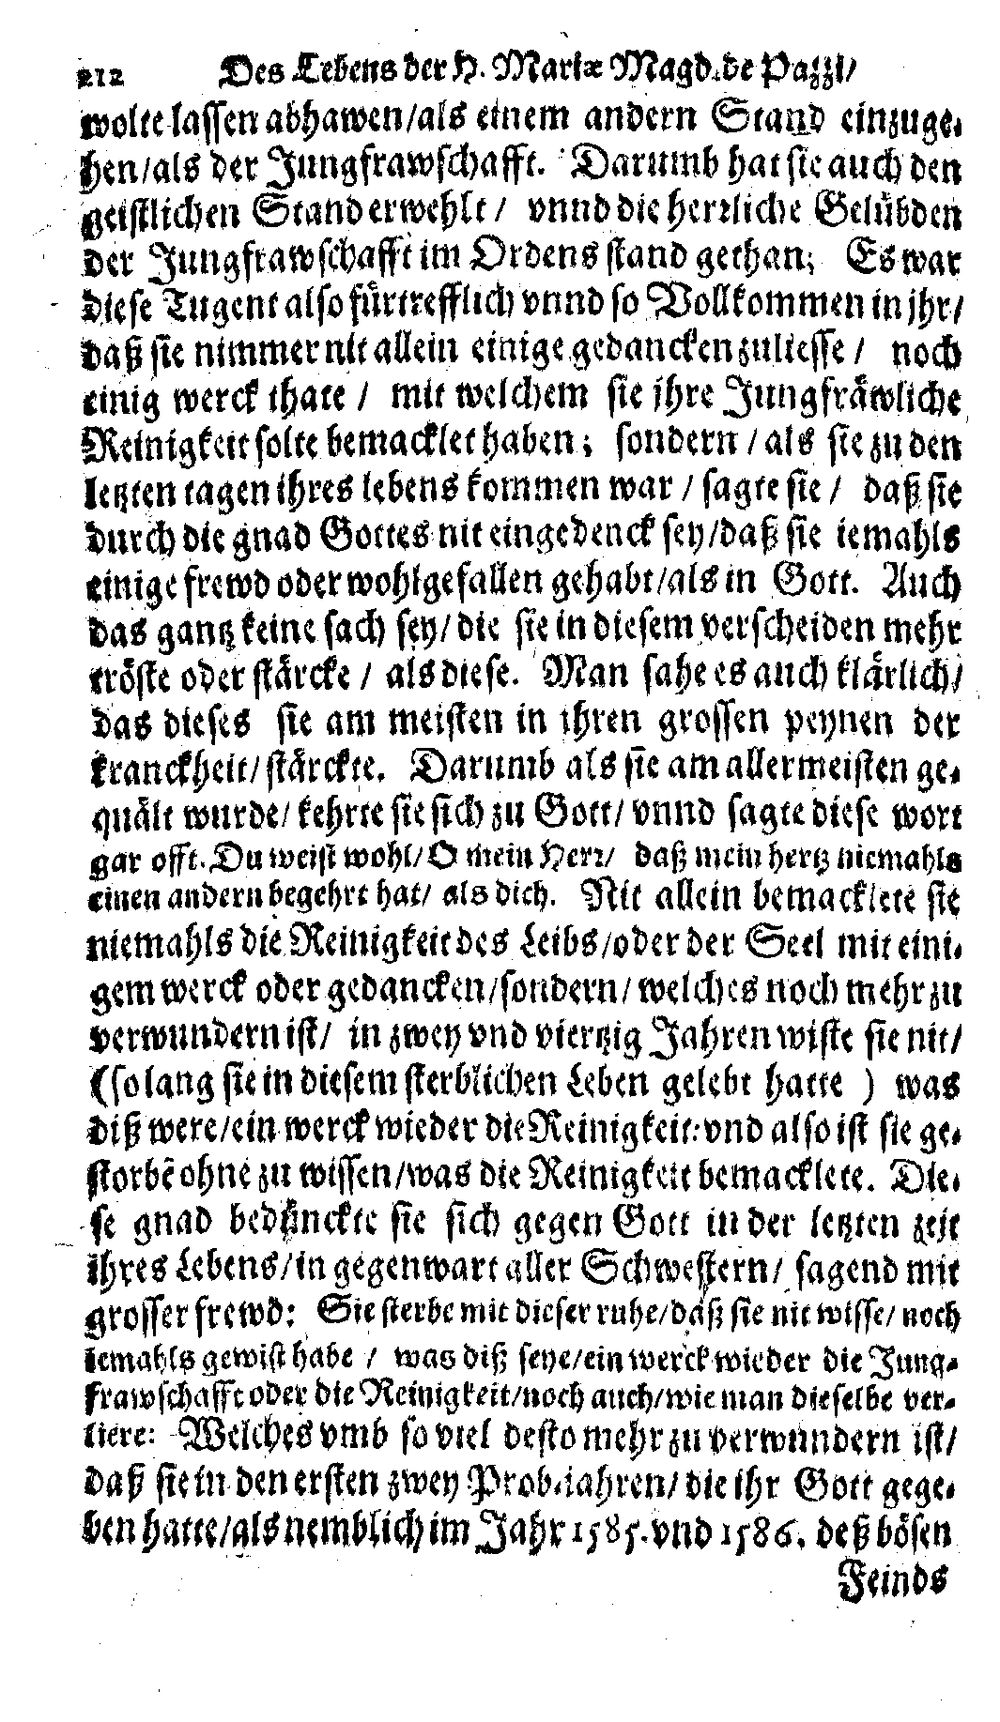 212 Des Lebens der H. Mariæ Magd. de Pazzi/
wolte lassen abhawen/als einem andern Stand einzuge-
hen/als der Jungfrawschafft. Darumb hat sie auch den
geistlichen Stand erwehlt/ vnnd die herrliche Gelübden
der Jungfrawschafft im Ordens stand gethan; Es war
diese Tugent also fürtrefflich vnnd so Vollkommen in jhr/
daß sie nimmer nit allein einige gedancken zuliesse/ noch
einig werck thate/ mit welchem sie jhre Jungfräwliche
Reinigkeit solte bemacklet haben; sondern/als sie zu den
letzten tagen ihres lebens kommen war/sagte sie/ daß sie
durch die gnad Gottes nit eingedenck sey/daß sie iemahls
einige frewd oder wohlgefallen gehabt/als in Gott. Auch
das gantz keine sach sey/die sie in diesem verscheiden mehr
tröste oder stärcke/ als diese. Man sahe es auch klärlich/
das dieses sie am meisten in ihren grossen peynen der
kranckheit/stärckte. Darumb als sie am allermeisten ge-
quält wurde/kehrte sie sich zu Gott/vnnd sagte diese wort
gar offt. Du weist wohl/O mein Herr/ daß mein hertz niemahls
einen andern begehrt hat/ als dich. Nit allein bemacklete sie
niemahls die Reinigkeit des Leibs/oder der Seel mit eini-
gem werck oder gedancken/sondern/welches noch mehr zu
verwundern ist/ in zwey vnd viertzig Jahren wiste sie nit/
(so lang sie in diesem sterblichen Leben gelebt hatte ) was
diß were/ein werck wieder die Reinigkeit: vnd also ist sie ge-
storbē ohne zu wissen/was die Reinigkeit bemacklete. Die-
se gnad bedünckte sie sich gegen Gott in der letzten zeit
ihres Lebens/in gegenwart aller Schwestern/ sagend mit
grosser frewd: Sie sterbe mit dieser ruhe/daß sie nit wisse/noch
iemahls gewist habe / was diß seye/ein werck wieder die Jung-
frawschafft oder die Reinigkeit/noch auch/wie man dieselbe ver-
liere: Welches vmb so viel desto mehr zu verwundern ist/
daß sie in den ersten zwey Prob-iahren/die ihr Gott gege-
ben hatte/als nemblich im Jahr 1585. vnd 1586. deß bösen
Feinds